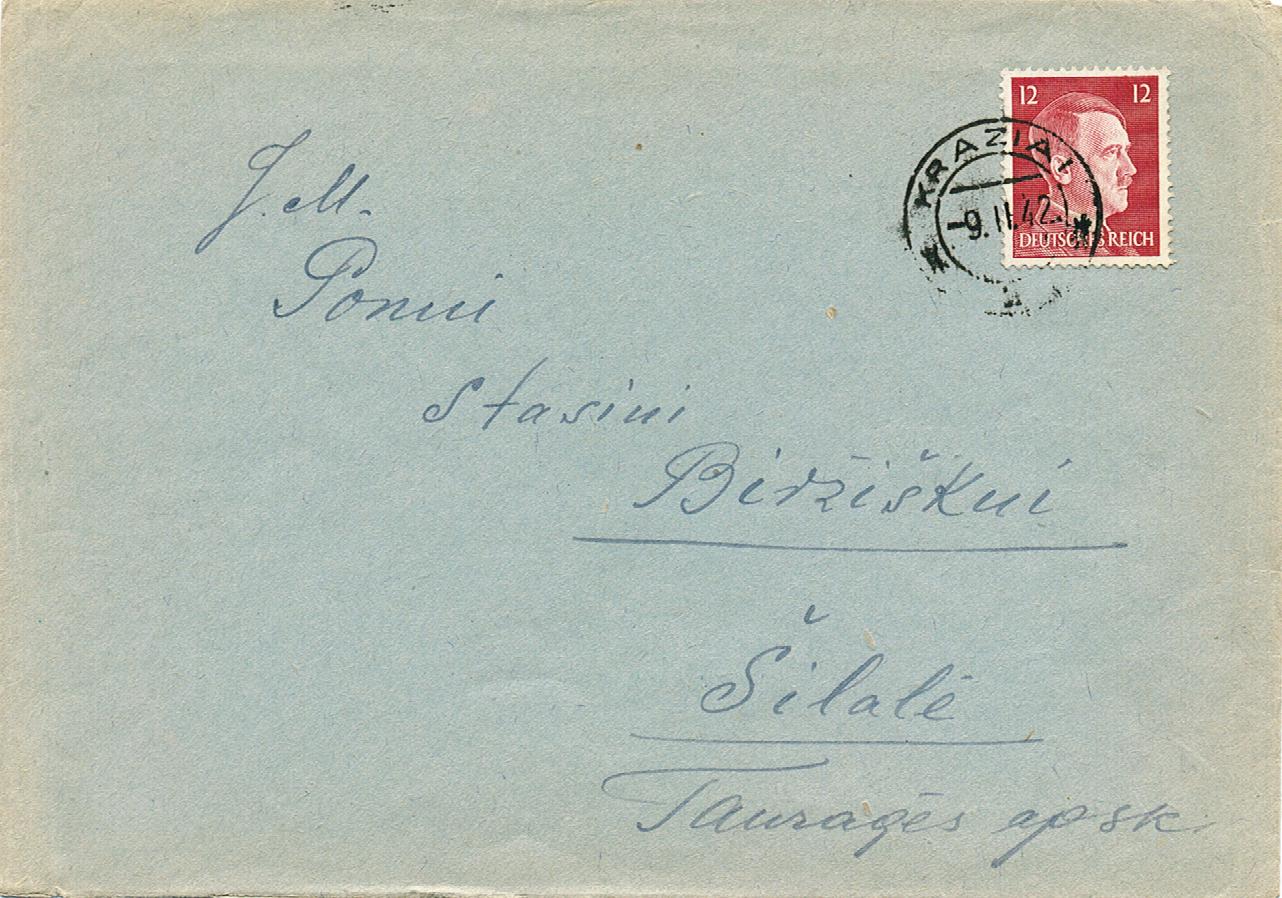 12 12
DEUTSCHES REICH
KRAZIAI
9.II.42.
J. M.
Ponui
Stasiui
Biržiškui
Šilalė
Tauragės apsk.